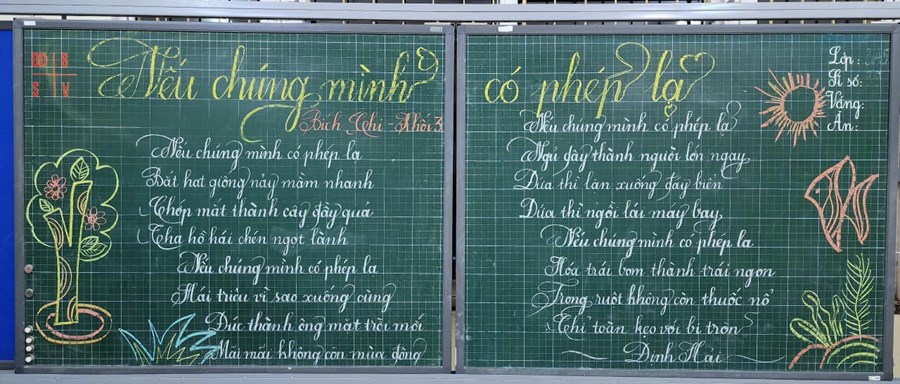 Nếu chúng mình có phép lạ
Bích Chi - Khối 3
Nếu chúng mình có phép lạ
Bắt hạt giống nảy mầm nhanh
Chớp mắt thành cây đầy quả
Tha hồ hái chén ngọt lành
Nếu chúng mình có phép lạ
Hái triệu vì sao xuống cùng
Đúc thành ông mặt trời mới
Mãi mãi không còn mùa đông
Nếu chúng mình có phép lạ
Ngủ dậy thành người lớn ngay
Đứa thì lặn xuống đáy biển
Đứa thì ngồi lái máy bay
Nếu chúng mình có phép lạ
Hóa trái bom thành trái ngon
Trong ruột không còn thuốc nổ
Chỉ toàn kẹo với bi tròn
Định Hải
Lớp:
Sĩ số:
Vắng:
Ăn: